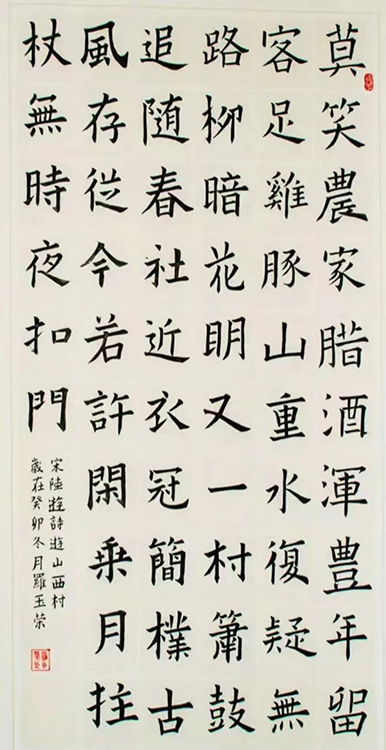 莫笑農家腊酒渾豊年留
客足雞豚山重水復疑無
路柳暗花眀又一村簫鼓
追随春社近衣冠簡樸古
風存従今若許閑乗月拄
杖無時夜扣門
宋陸遊詩遊山西村
歲在癸卯冬月羅玉荣